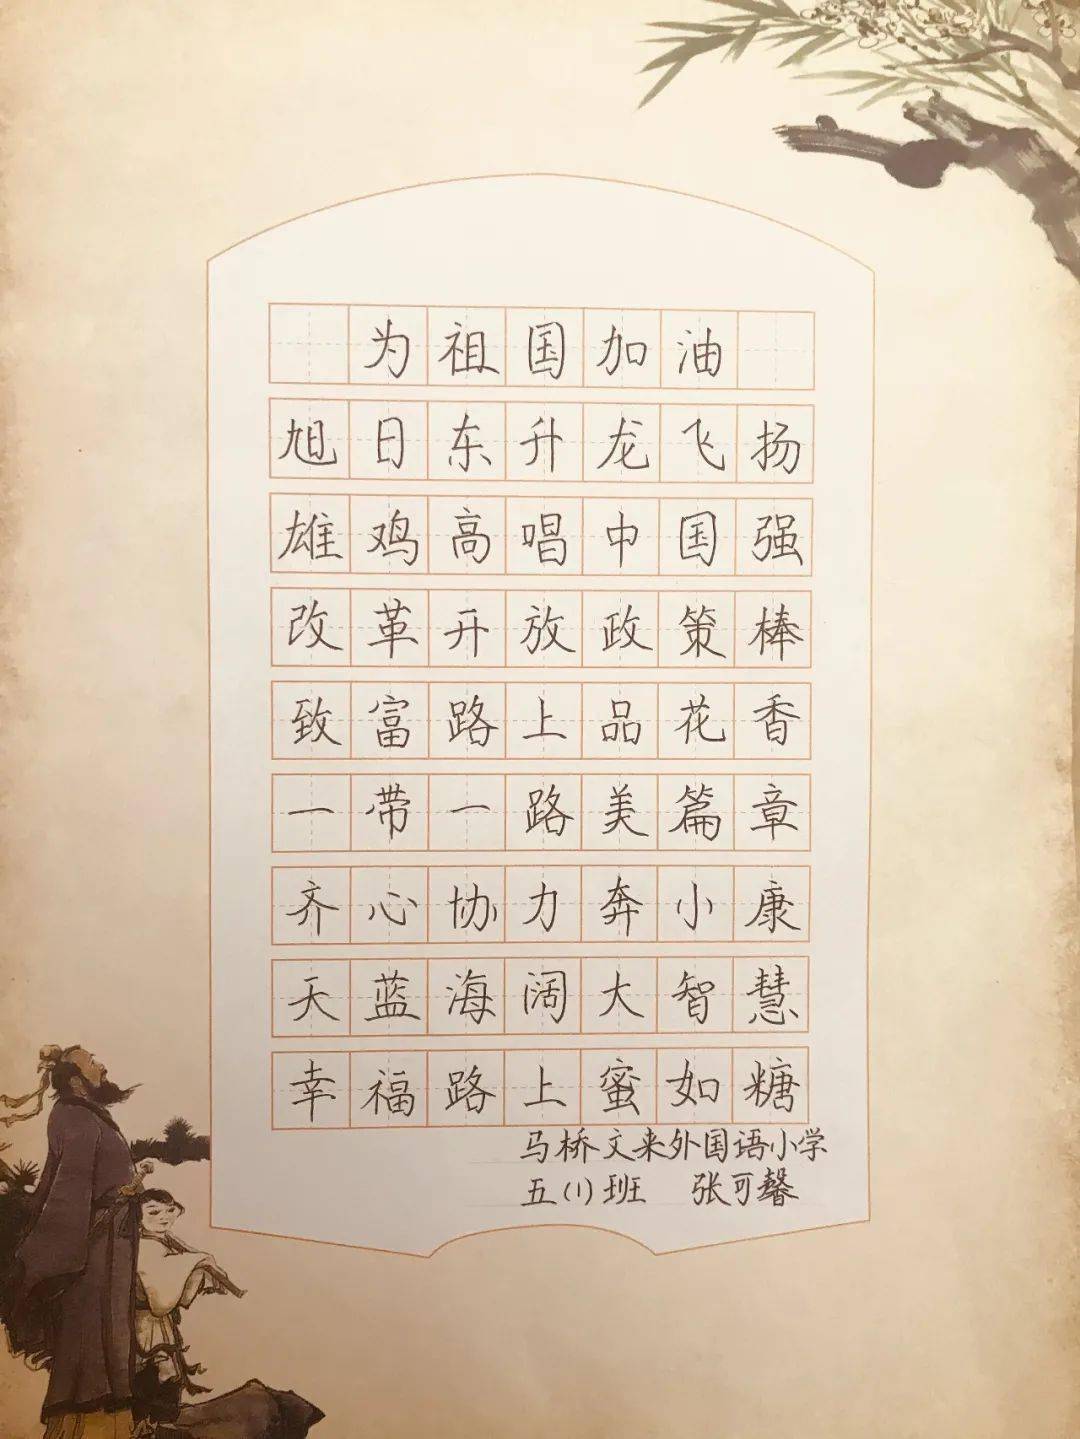 为祖国加油
旭日东升龙飞扬
雄鸡高唱中国强
改革开放政策棒
致富路上品花香
一带一路美篇章
齐心协力奔小康
天蓝海阔大智慧
幸福路上蜜如糖
马桥文来外国语小学
五(1)班 张可馨